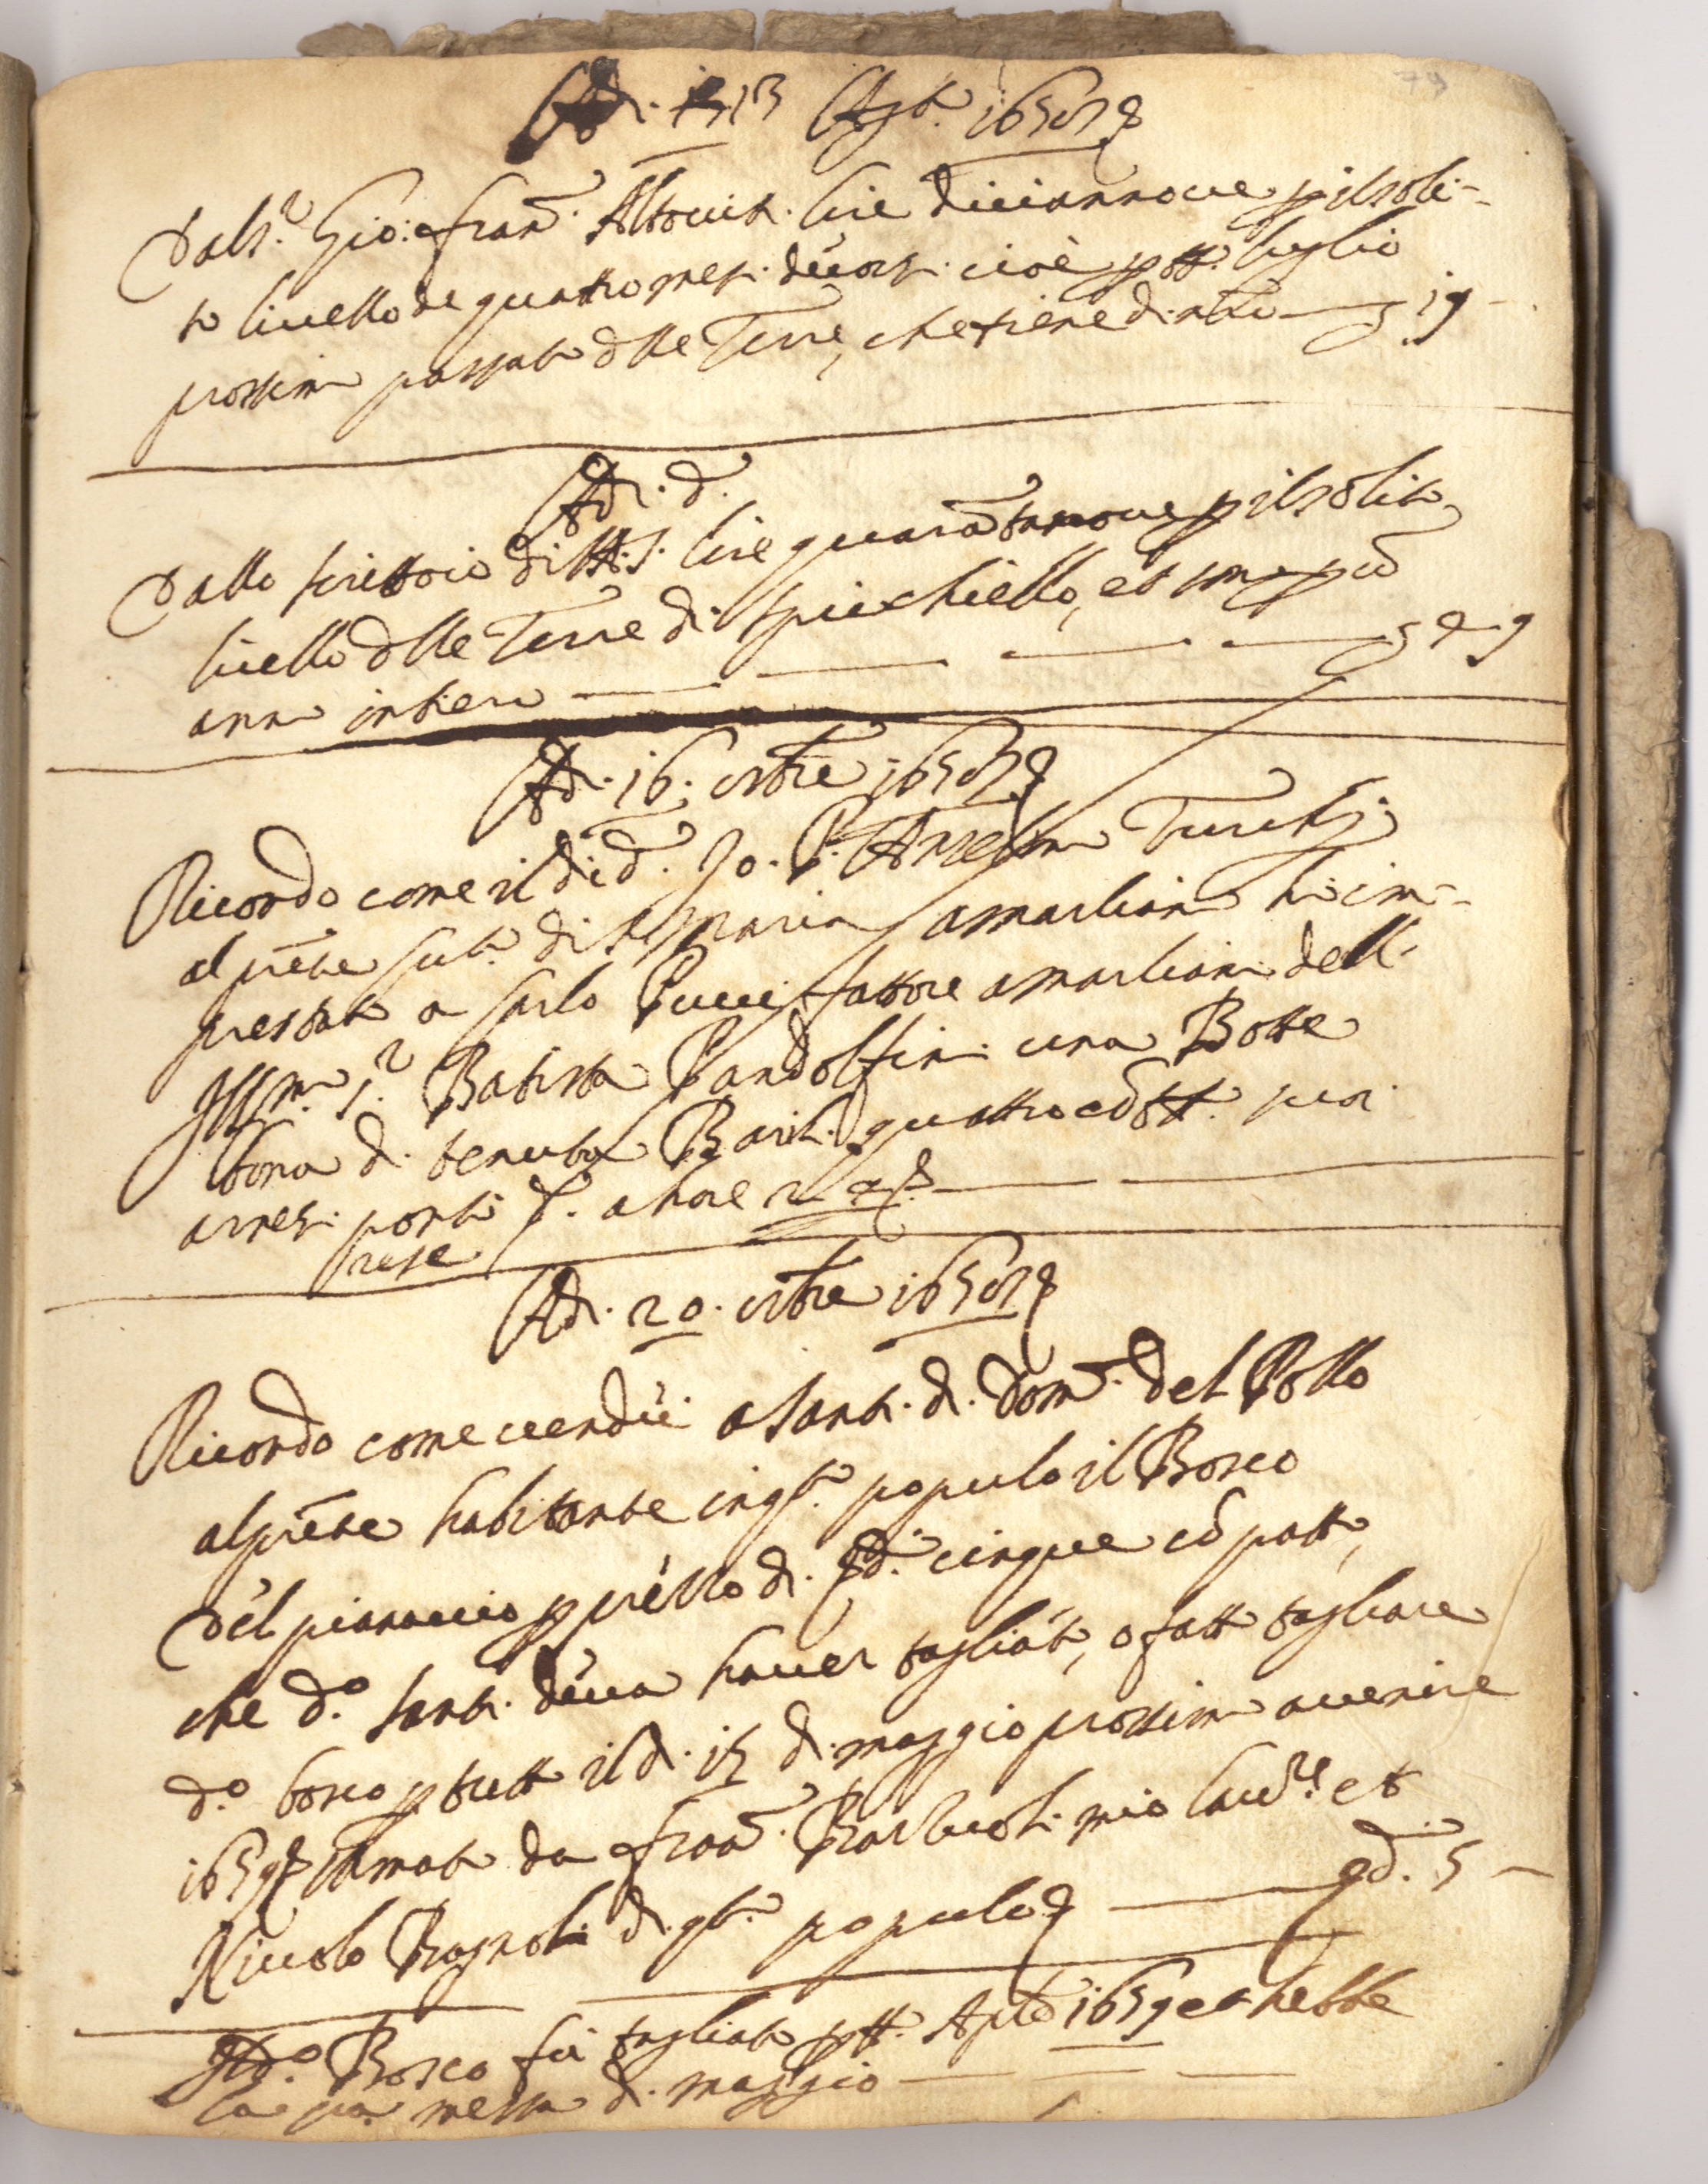 Adi. 13 Agto. 1658
Dal Sr. Gio: Fran: Altoviti. lire diciannove p il soli-
to livello de quattro mesi decorsi. cioè p tt. luglio
prossimo passato dlle Terre, che tiene di nro — 19 -
Adi. do.
Dallo scrittoio di S.A.S. lire quarātanove p il solito
livello dlle Terre di Spicchiello, et sono p ū
anno intiero — — — — 49
Adi. 16. 8tbre 1658
Ricordo come il di do. Io. P. Anselmo Turchi
al prēte Cur. di S. Maria a Marliano hò im-
prestato a Carlo Pucci fattore a Marliano dell'
Illmo. Sr. Batista Pandolfini una Botte
bona di tenuta Barili quattro cō tt. suoi
arnesi
rese
Adi. 20. 8tbre 1658
Ricordo come vendei a Santi. di Domco. del Pollo
al prēte habitante in qto. populo il Bosco
del pianaccio p prezzo di sdi. cinque cō patto,
che do. Santi. deva haver tagliato, o fatto tagliare
do. bosco p tutto il di. 15 di. maggio prossimo avenire
1659 stimato da Franco. Barbucoli. mio lavre. et
Niccolo Bagnoli di. qto. populo — sd. 5 —
Il do. Bosco fu tagliato p tt. Aple 1659 et hebbe
la pa. messa di. maggio — — —